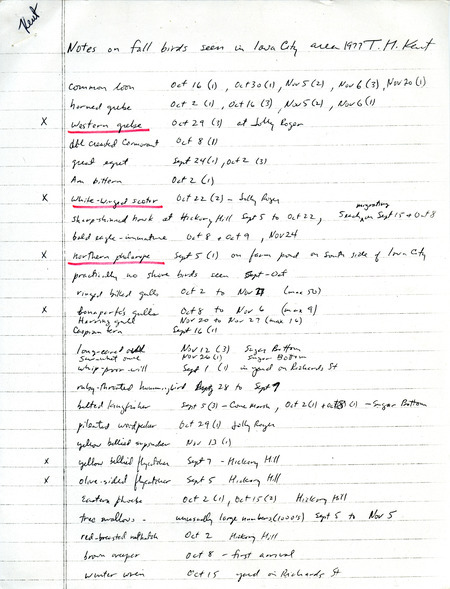 Kent
Notes on fall birds seen in Iowa City area 1977 T. H. Kent
Common loon Oct 16 (1), Oct 30 (1), Nov 5 (2), Nov 6 (3), Nov 20 (1)
horned grebe Oct 2 (1), Oct 16 (3), Nov 5 (2), Nov 6 (1)
X Western grebe Oct 29 (3) at Jolly Roger
dbl crested Cormorant Oct 8 (1)
great egret Sept 24 (1), Oct 2 (3)
Am bittern Oct 2 (1)
X White-winged scoter Oct 22 (2) - Jolly Roger
migrating
sharp-shinned hawk at Hickory Hill Sept 5 to Oct 22, Sept 15 + Oct 8
bald eagle - immature Oct 8 + Oct 9, Nov 24
X Northern phalarope Sept 5 (1) on farm pond on south side of Iowa City
practically no shore birds seen Sept-Oct
ringed billed gulls Oct 2 to Nov (max 50)
X Bonaparte's gulls Oct 8 to Nov 6 (max 9)
Herring gull Nov 20 to Nov 27 (max 16)
Caspian tern Sept 16 (1)
long-eared owl Nov 12 (3) Sugar Bottom
Saw-whet owl Nov 26 (1) Sugar Bottom
whip-poor-will Sept 1 (1) in yard on Richards St
ruby-throated hummingbird 28 to Sept 9
belted kingfisher Sept 5 (3) - Cone Marsh, Oct 2 (1) + Oct 8 (1) - Sugar Bottom
pileated woodpecker Oct 29 (1) Jolly Roger
yellow bellied sapsucker Nov 13 (1)
X yellow bellied flycatcher Sept 7 - Hickory Hill
X olive-sided flycatcher Sept 5 Hickory Hill
Eastern phoebe Oct 2 (1), Oct 15 (2) Hickory Hill
tree swallows - unusually large numbers (1000's) Sept 5 to Nov 5
red-breasted nuthatch Oct 2 Hickory Hill
brown creeper Oct 8 - first arrival
winter wren Oct 15 yard on Richards St